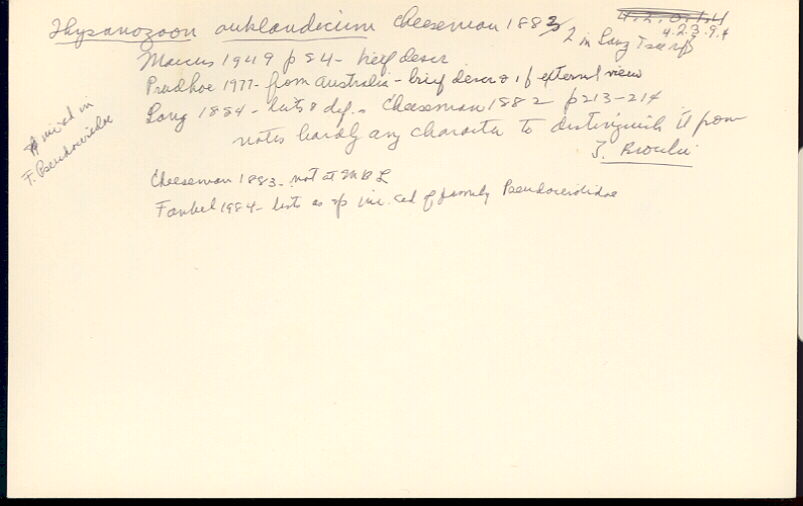 4.2.0.1.4
4.2.3.9.4
Thysanozoon auklandicum Cheeseman 1883/2 in Lang
Marcus 1949 p 84 - brief descr
Prudhoe 1977 - from Australia - brief descr & of external view
Lang 1884 - lists & def. - Cheeseman 1882 p213-214
notes hardly any character to distinguish it from
T. Brocchii
sp inc. sed in
F. Pseudocerotidae
Cheeseman 1883 - not at MBL
Faubel 1984 - lists as sp inc. sed of family Pseudocerotidae